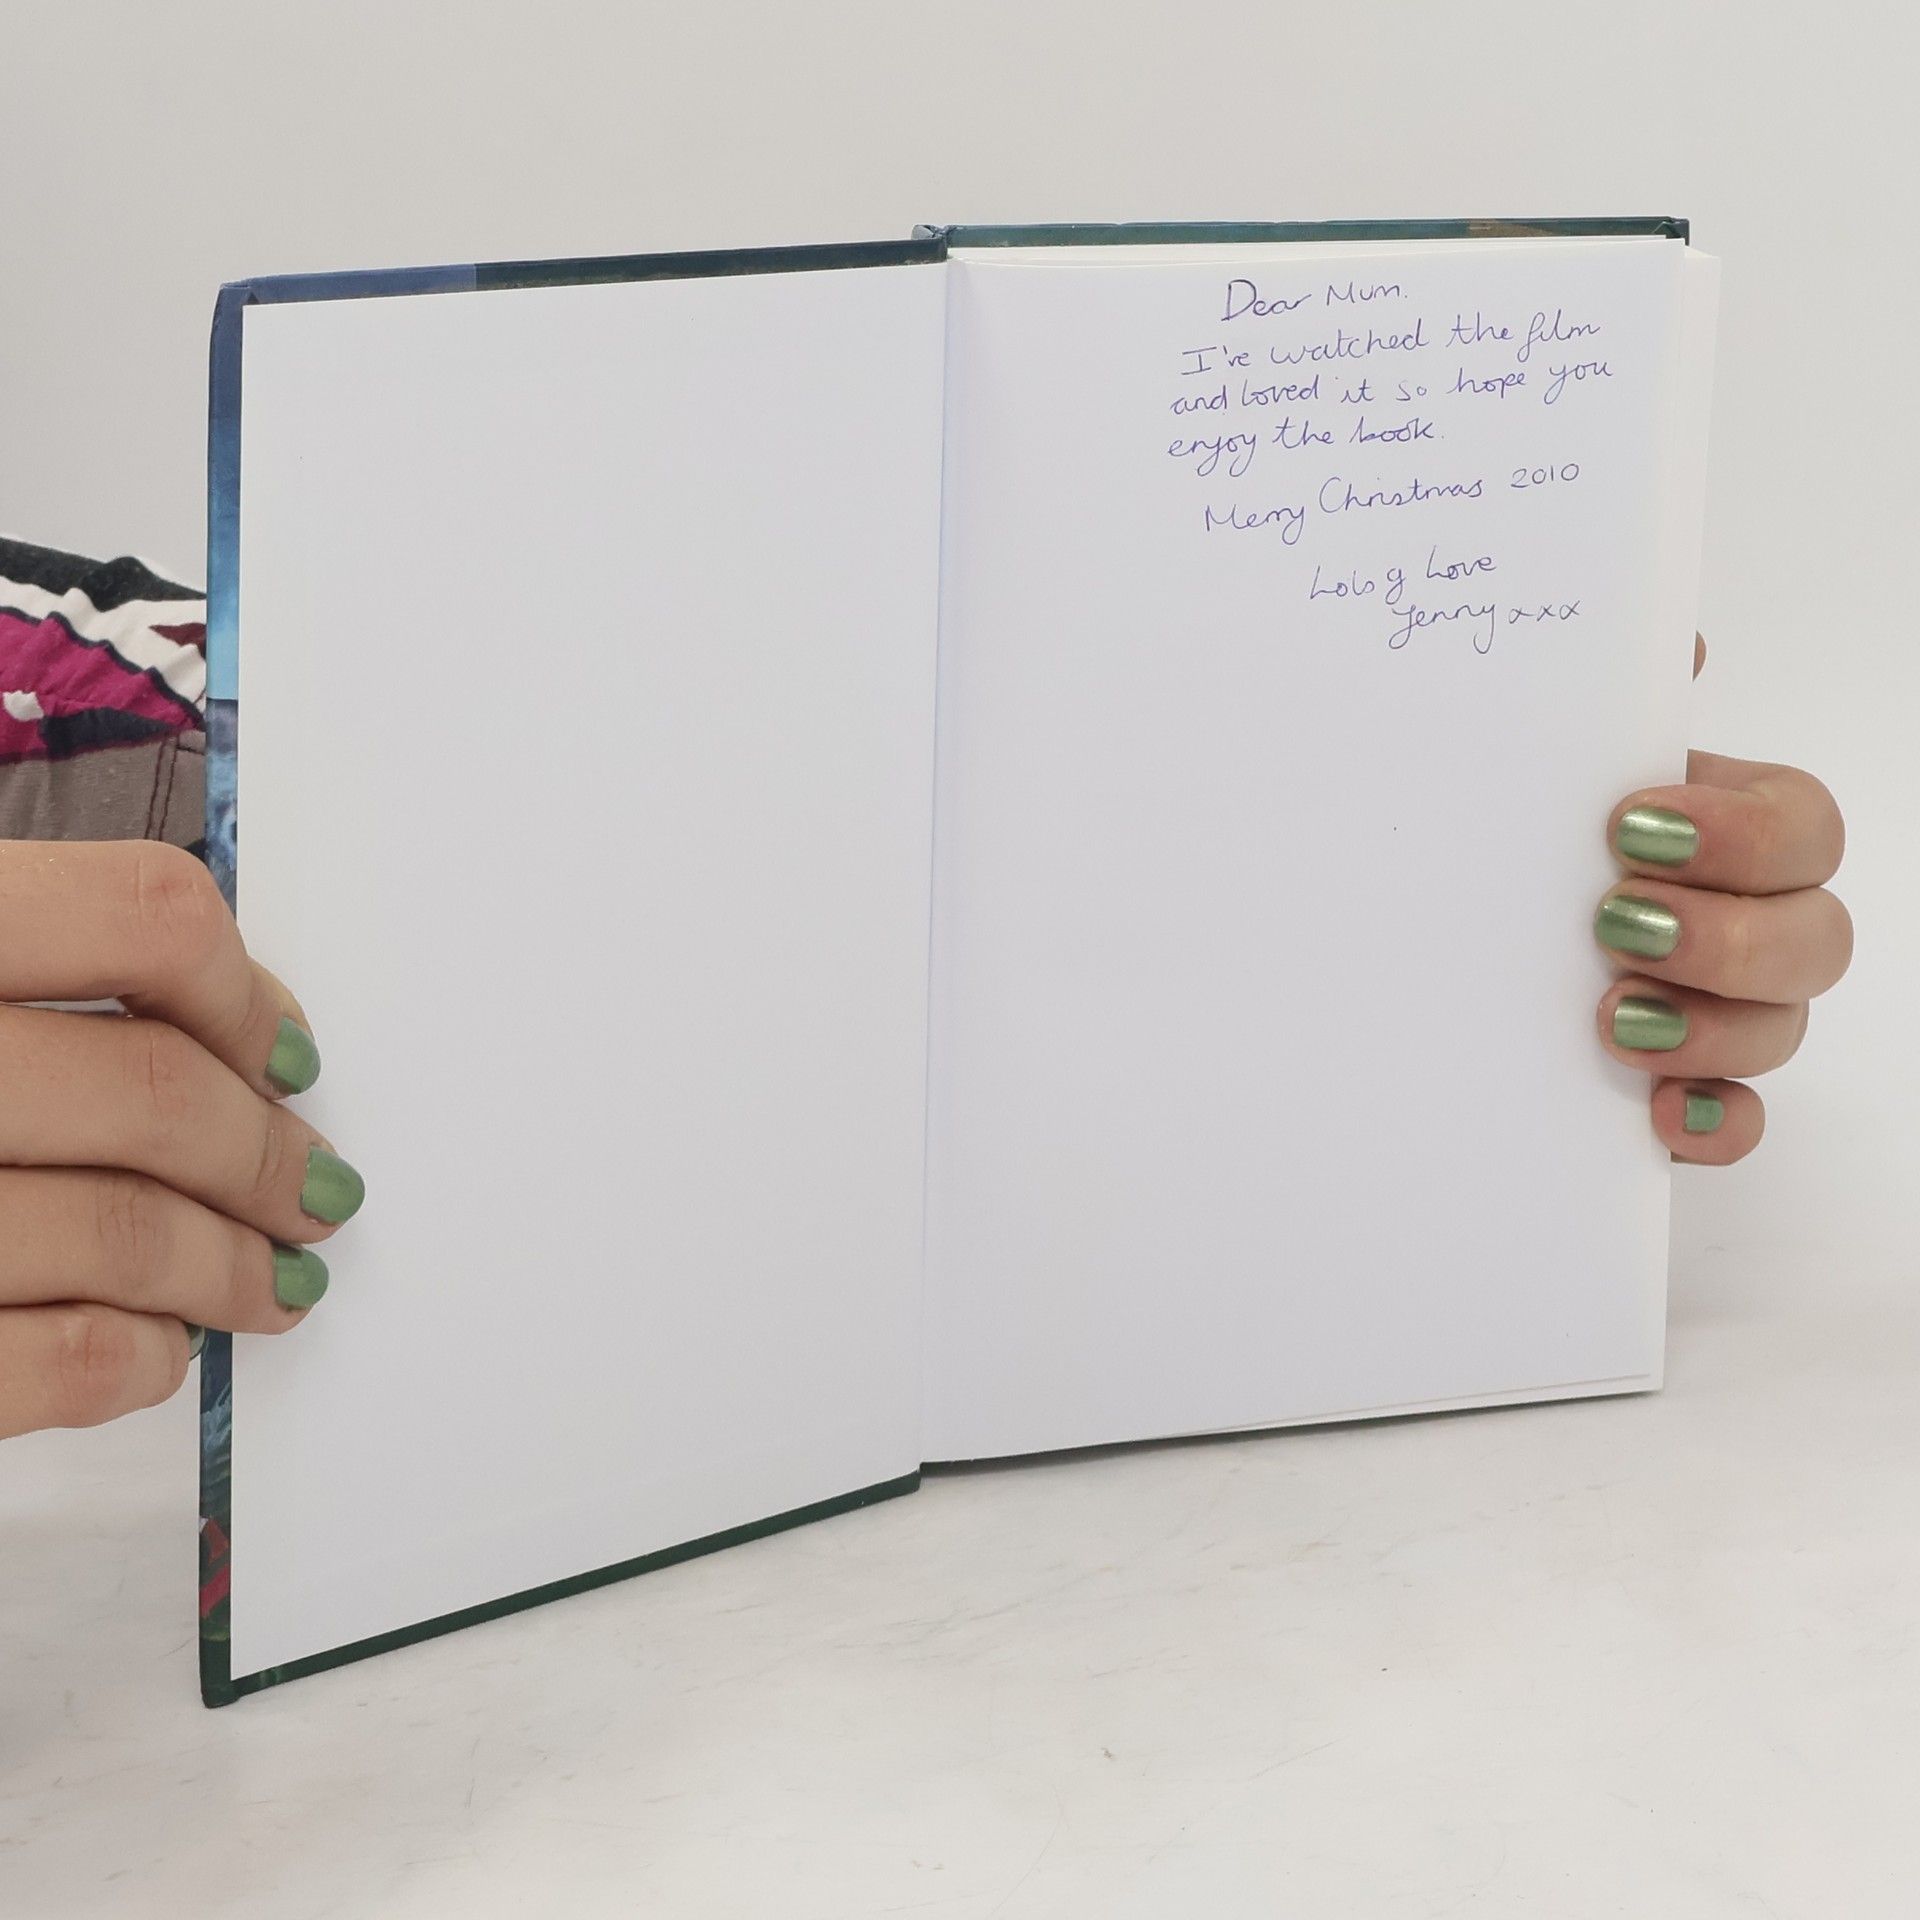 Dear Mum.
I've watched the film
and loved it so hope you
enjoy the book.
Merry Christmas 2010
Lots of Love
Jenny xxx